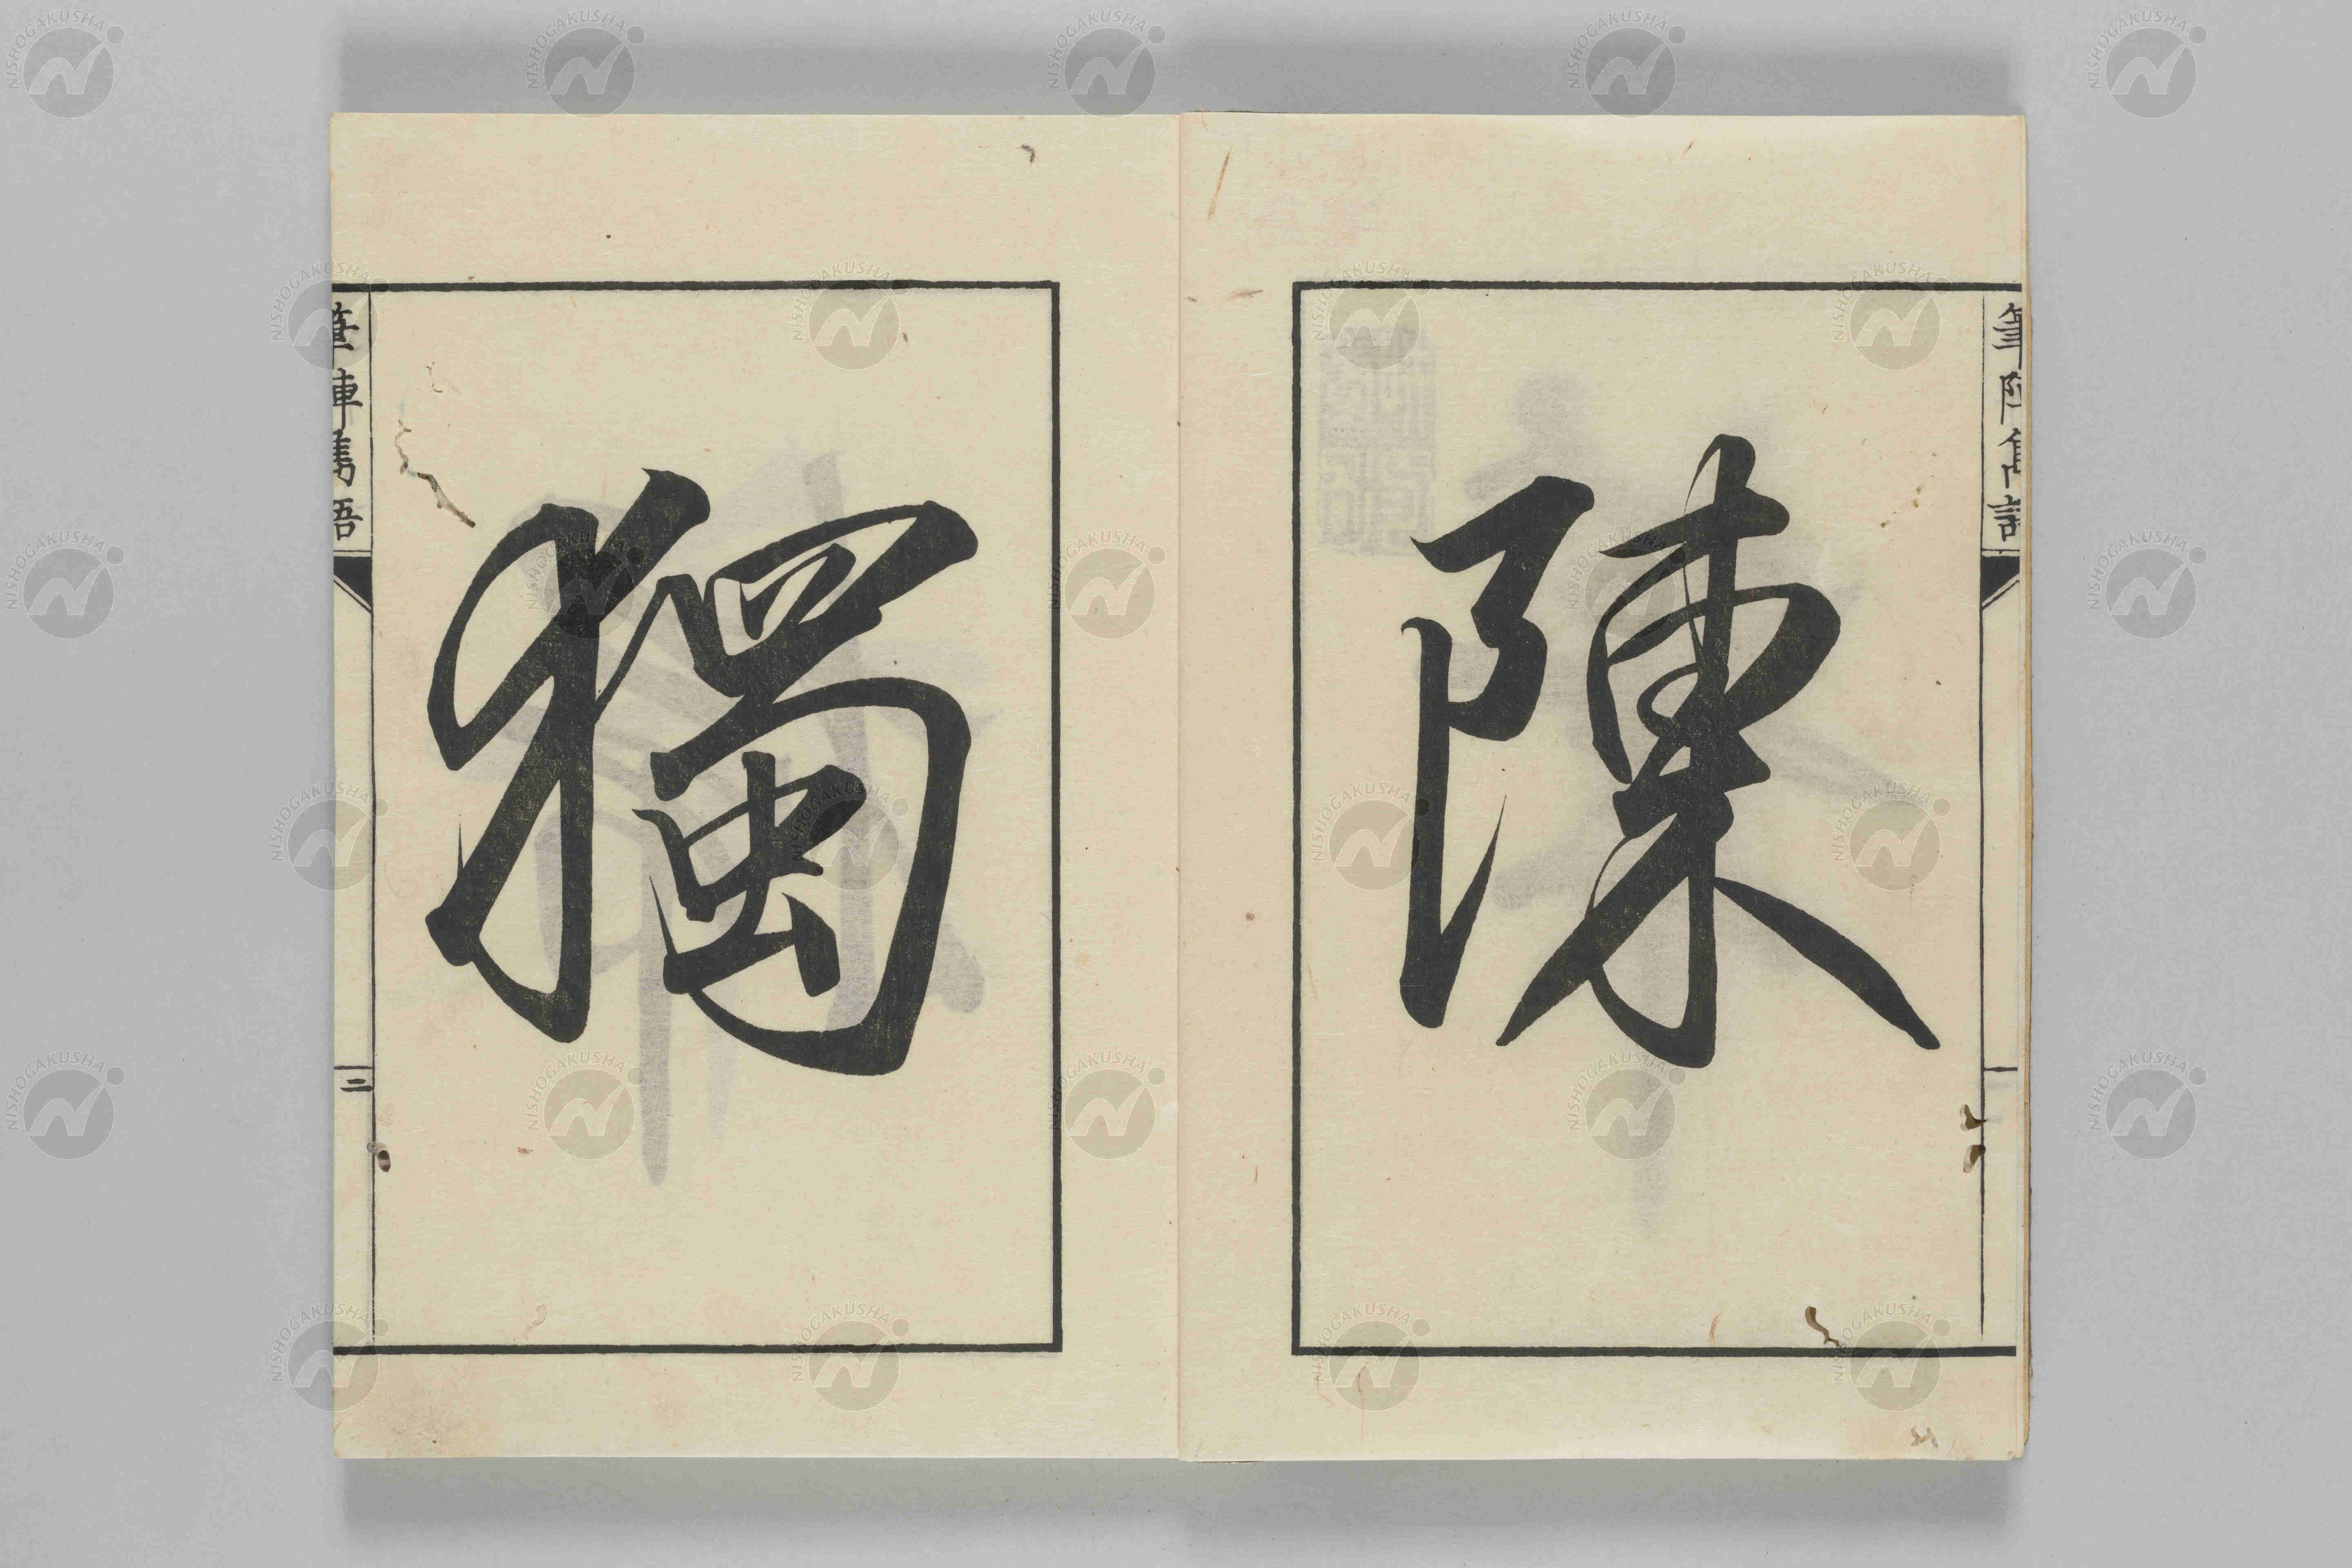 筆陣雋語
一
陳
獨
筆陣雋語
二
NISHOGAKUSHA